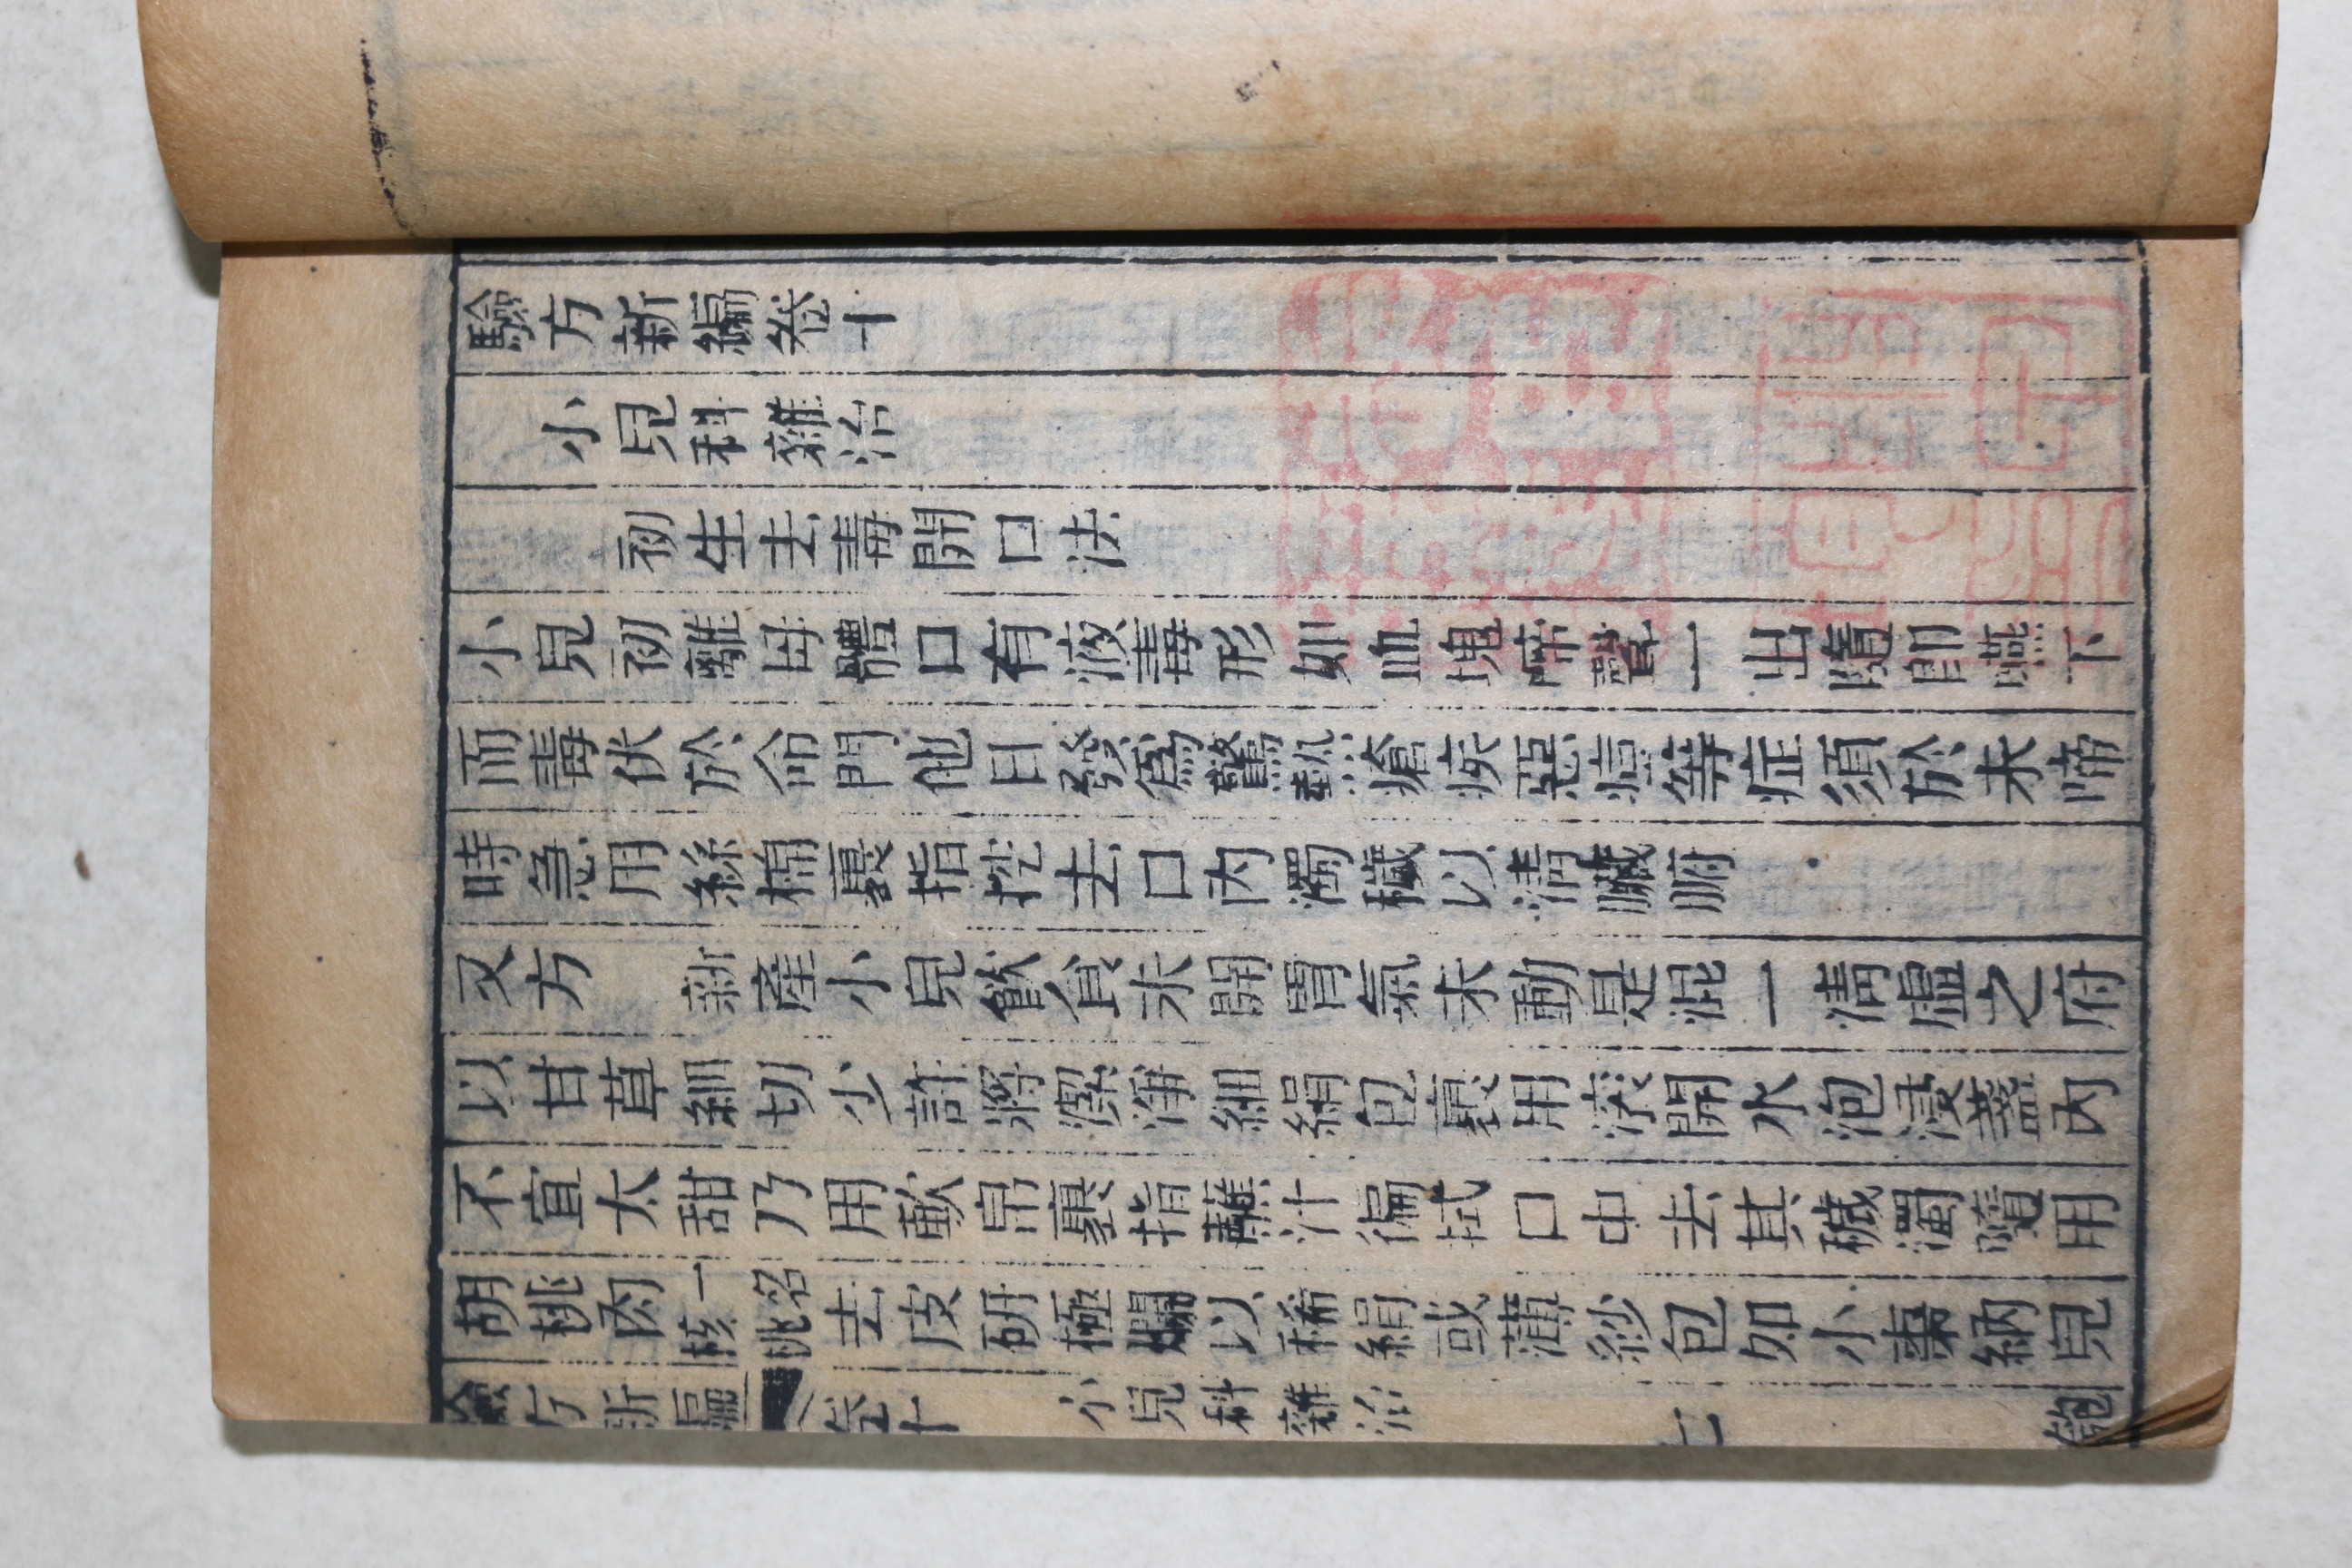 驗方新編卷十
小兒科雜治
初生去毒開口法
小兒初離母體口有液毒形如血塊啼聲一出隨卽嚥下
而毒伏於命門他日發爲驚熱瘡疾惡痘等症須於未啼
時急用絲棉裹指挖去口內濁穢以清臟腑
又方　新產小兒飲食未開胃氣未動是混一清虛之府
以甘草細切少許將潔淨細絹包裹用滾開水泡浸盞內
不宜太甜乃用軟帛裹指蘸汁徧拭口中去其穢濁隨用
胡桃肉一名核桃去皮研極爛以稀絹或薄紗包如小棗納兒
驗方新編　卷十　小兒科雜治